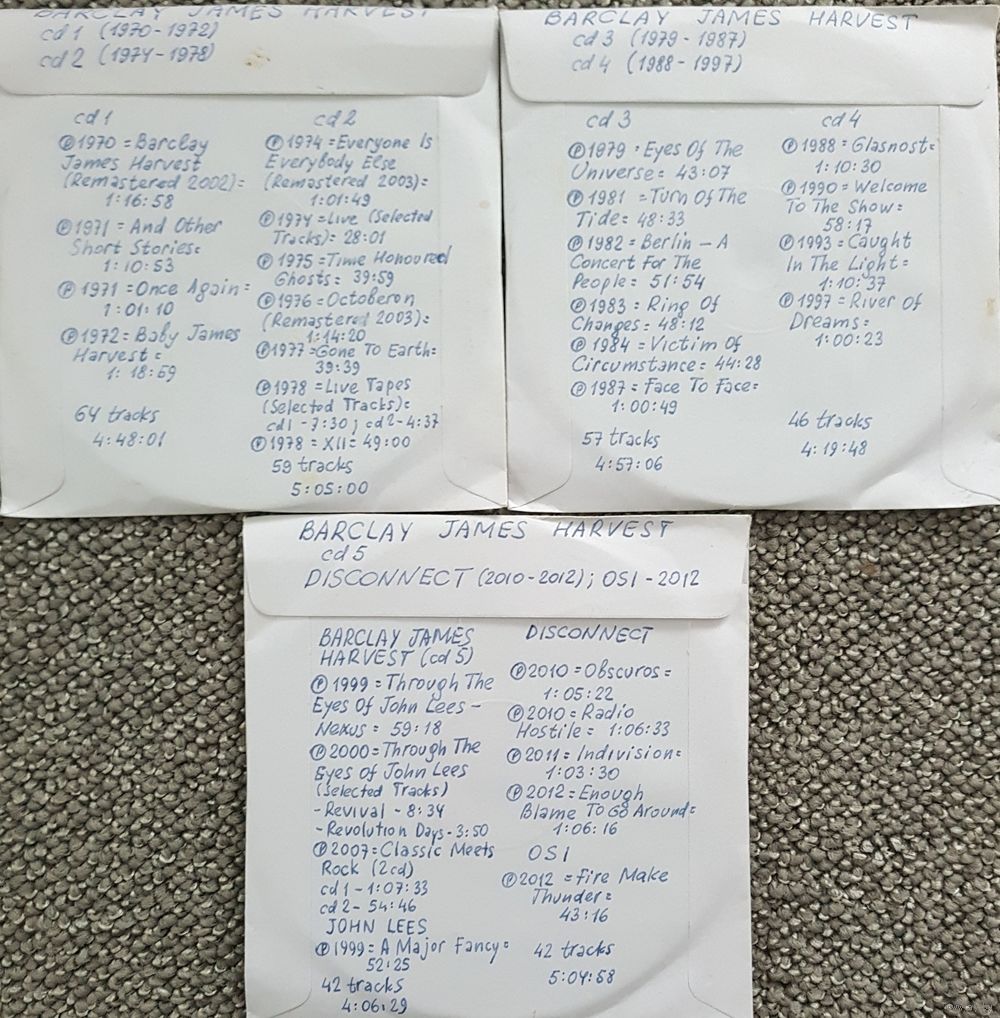 BARCLAY JAMES HARVEST
cd 1 (1970-1972)
cd 2 (1974-1978)
cd 1
℗1970 = Barclay
James Harvest
(Remastered 2002):
1:16:58
℗1971 = And Other
Short Stories:
1:10:53
℗1971 = Once Again:
1:01:10
℗1972 = Baby James
Harvest:
1:18:59
64 tracks
4:48:01
cd 2
℗1974 = Everyone Is
Everybody Else
(Remastered 2003):
1:01:49
℗1974 = Live (Selected
Tracks): 28:01
℗1975 = Time Honoured
Ghosts: 39:59
℗1976 = Octoberon
(Remastered 2003):
1:14:20
℗1977 = Gone To Earth:
39:39
℗1978 = Live Tapes
(Selected Tracks):
cd1 - 7:30; cd2 - 4:37
℗1978 = XII: 49:00
59 tracks
5:05:00
BARCLAY JAMES HARVEST
cd 3 (1979-1987)
cd 4 (1988-1997)
cd 3
℗1979 = Eyes Of The
Universe: 43:07
℗1981 = Turn Of The
Tide: 48:33
℗1982 = Berlin – A
Concert For The
People: 51:54
℗1983 = Ring Of
Changes: 48:12
℗1984 = Victim Of
Circumstance: 44:28
℗1987 = Face To Face:
1:00:49
57 tracks
4:57:06
cd 4
℗1988 = Glasnost:
1:10:30
℗1990 = Welcome
To The Show:
58:17
℗1993 = Caught
In The Light:
1:10:37
℗1997 = River Of
Dreams:
1:00:23
46 tracks
4:19:48
BARCLAY JAMES HARVEST
cd 5
DISCONNECT (2010-2012); OSI - 2012
BARCLAY JAMES
HARVEST (cd 5)
℗1999 = Through The
Eyes Of John Lees –
Nexus: 59:18
℗2000 = Through The
Eyes Of John Lees
(Selected Tracks)
- Revival - 8:34
- Revolution Days - 3:50
℗2007 = Classic Meets
Rock (2cd)
cd 1 - 1:07:33
cd 2 - 54:46
JOHN LEES
℗1999 = A Major Fancy:
52:25
42 tracks
4:06:29
DISCONNECT
℗2010 = Obscuros:
1:05:22
℗2010 = Radio
Hostile: 1:06:33
℗2011 = Indivision:
1:03:30
℗2012 = Enough
Blame To Go Around:
1:06:16
OSI
℗2012 = Fire Make
Thunder:
43:16
42 tracks
5:04:58